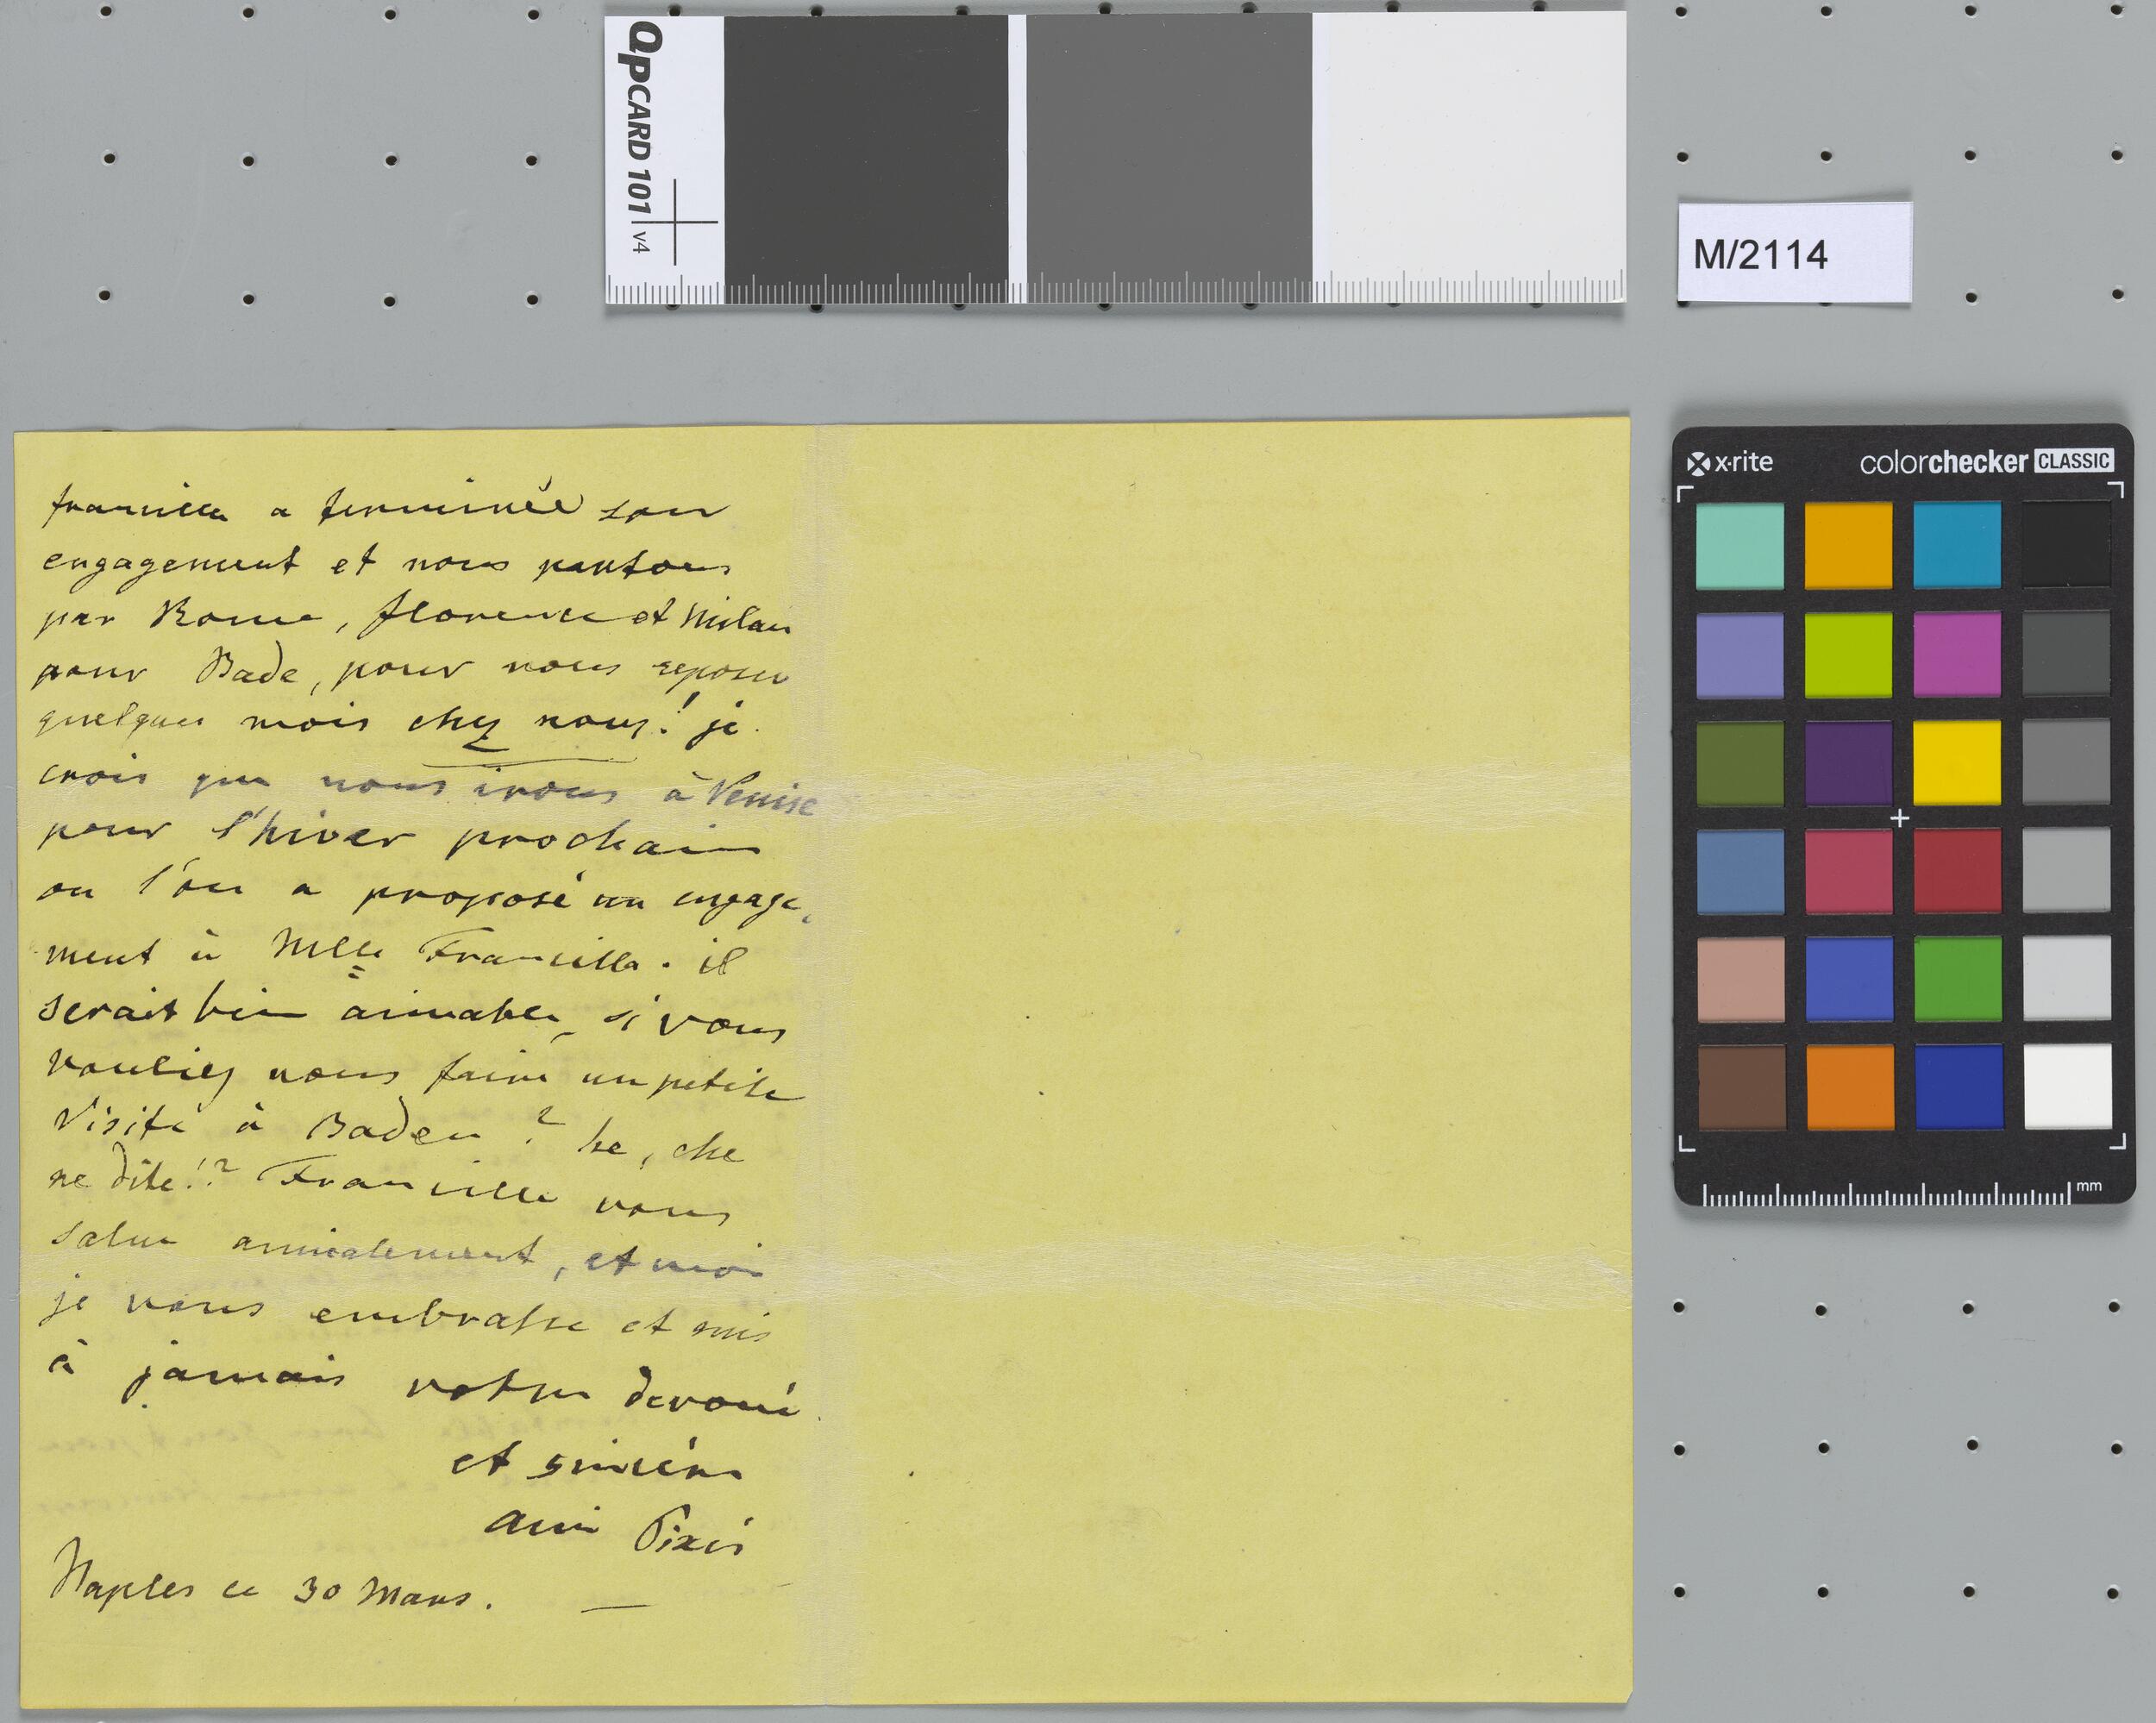 QPCARD 101 v4
M/2114
x·rite colorchecker CLASSIC
mm
francilla a terminée son
engagement et nous partons
par Rome, florence et Milan
pour Bade, pour nous reposer
quelques mois chez nous! je
crois que nous irons à Venise
pour l'hiver prochain
ou l'on a proposé un engage,
ment à Mlle Francilla. il
serait bien aimable, si vous
vouliez nous faire un petite
visite à Baden? he, che
ne dite!? Francilla vous
salue amicalement, et moi
je vous embrasse et suis
à jamais votre devoué
et sincère
ami Pixis
Naples ce 30 Mars. —